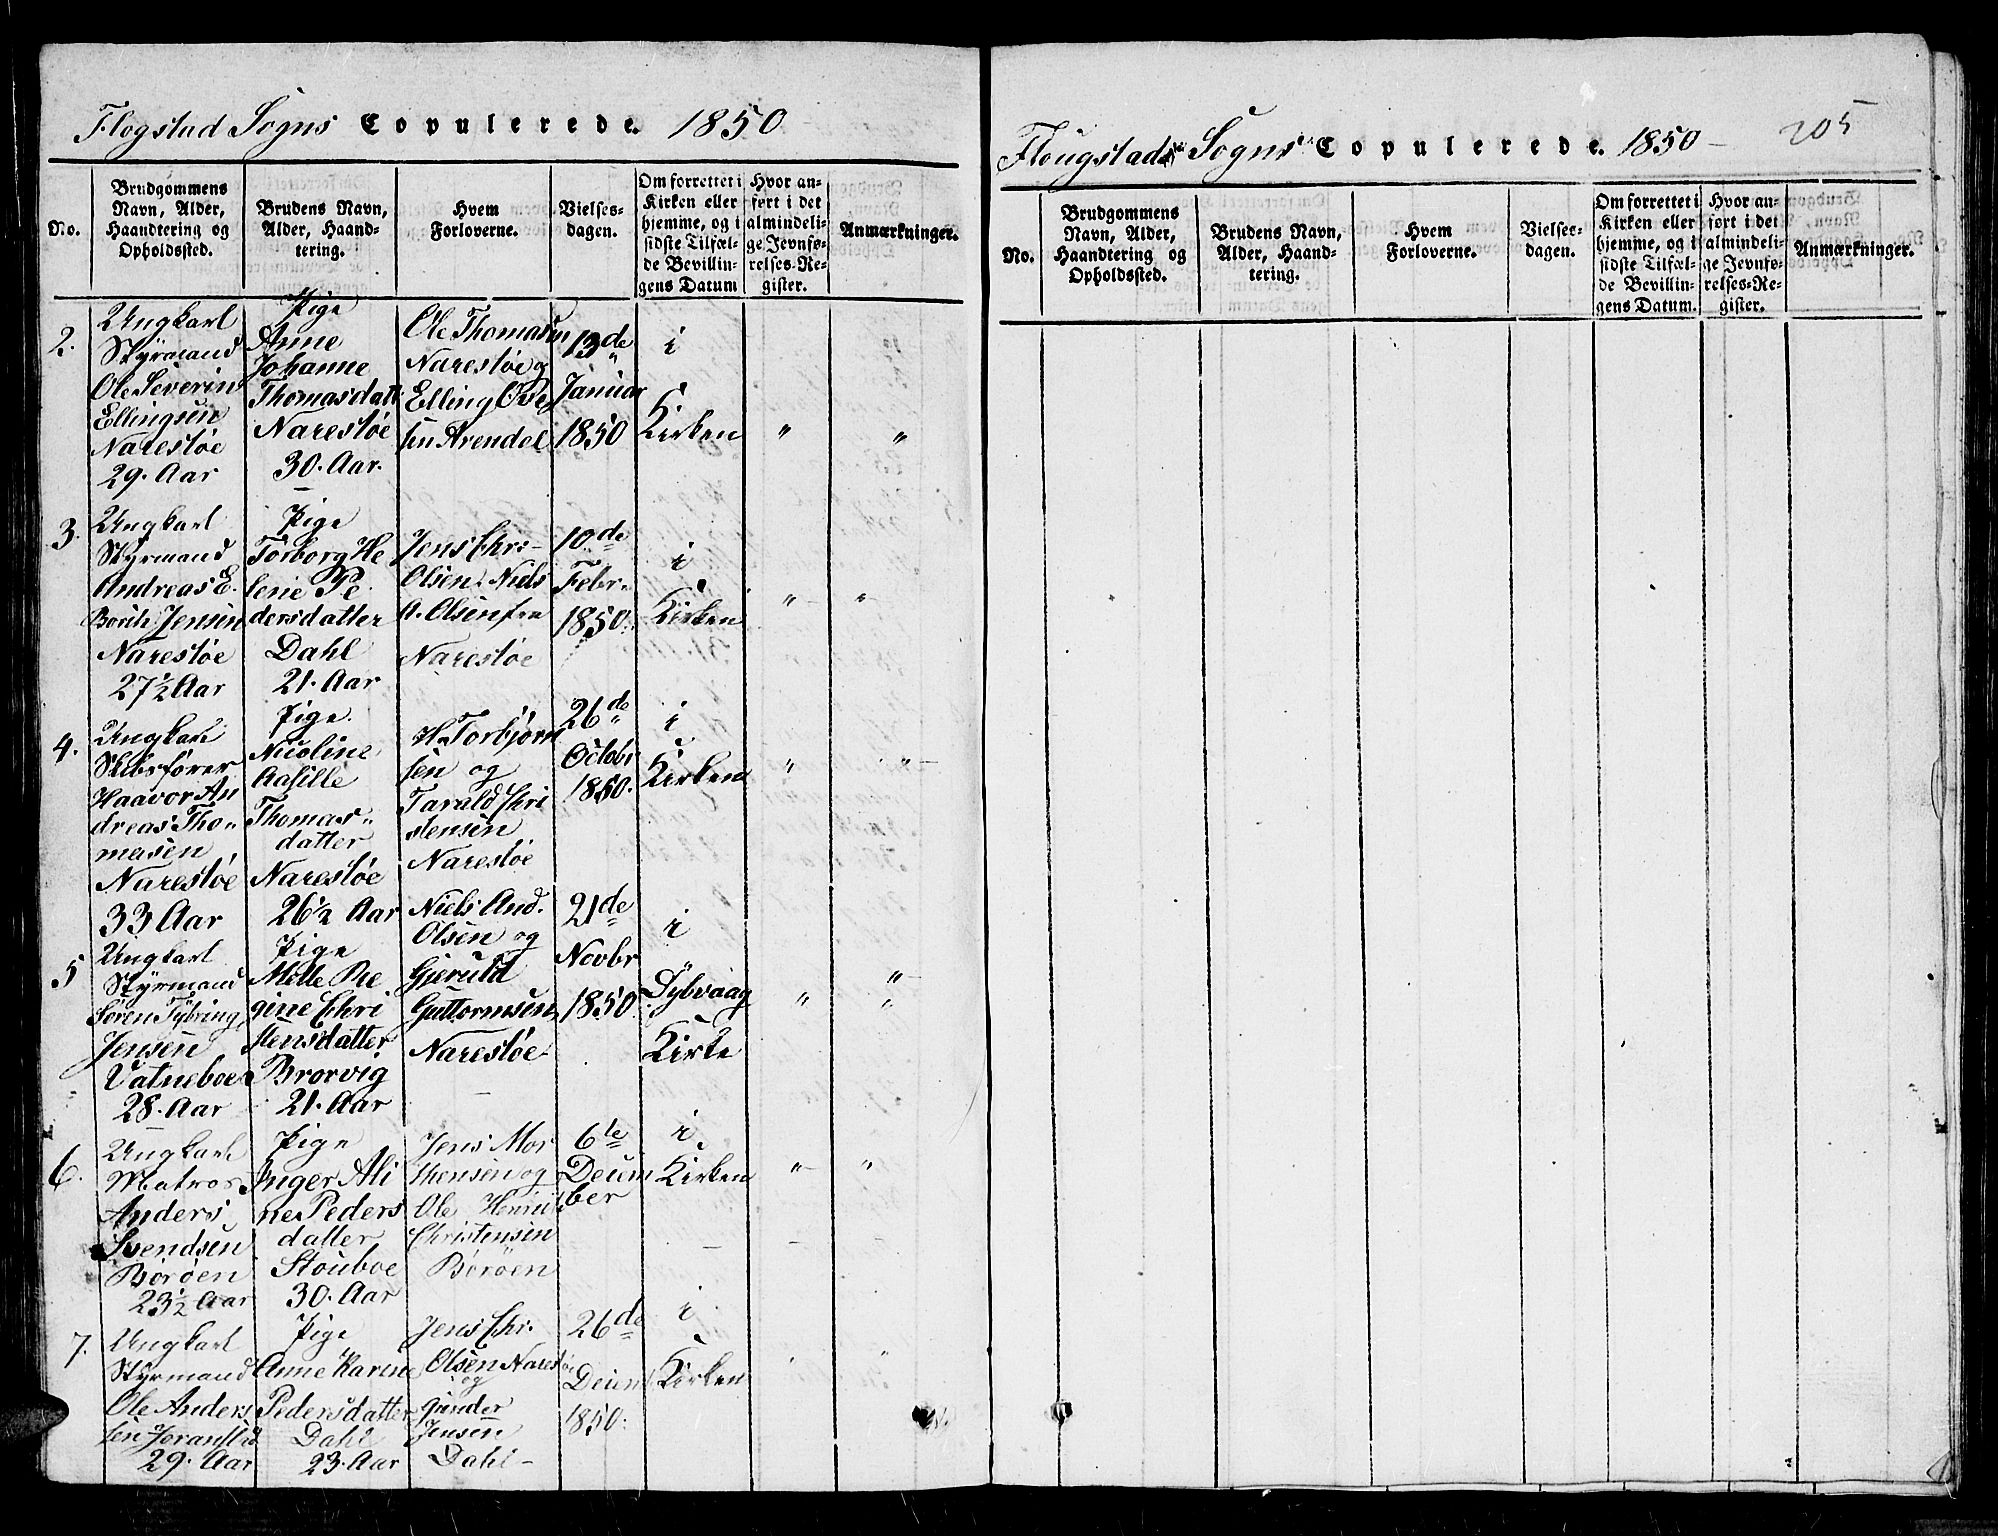 Flogstad Sogns Copulerede. 1850
No.
Brudgommens
Navn, Alder,
Haandtering og
Opholdssted.
Brudens Navn,
Alder, Haand-
tering.
Hvem
Forloverne.
Vielses-
dagen.
Om forrettet i
Kirken eller
hjemme, og i
sidste Tilfæl-
de Bevillin-
gens Datum
Hvor an-
ført i det
almindeli-
ge Jevnfø-
relses-Re-
gister.
Anmærkninger.
2.
Ungkarl
Styrmand
Ole Severin
Ellingsen
Narestøe
29. Aar
Pige
Anne
Johanne
Thomasdatt
Narestøe
30. Aar.
Ole Thomasen
Narestøe og
Elling Ose
sen Arendal
13de
Januar
1850
i
Kirken
"
"
3.
Ungkarl
Styrmand
Andreas E.
Berith Jensen
Narestøe
27½ Aar
Pige
Torborg He
lene Pe
dersdatter
Dahl
21. Aar
Jens Chr:
Olsen. Niels
A. Olsen fra
Narestøe
10de
Febr.
1850.
i
Kirken
"
"
4.
Ungkarl
Skibsfører
Haavor An
dreas Tho"
masen
Narestøe
33 Aar
Pige.
Nicoline
Aasille
Thomas"
datter
Narestøe
26½ Aar
H. Torbjørn
sen og
Tarald Chri
stensen
Narestøe
26de
Octobr
1850.
i
Kirken
"
"
5
Ungkarl
Styrmand
Søren Tybring
Jensen
Vatneboe
28. Aar
Pige
Mette Re
gine Chri
stensdatter
Brorvig
21. Aar
Niels And.
Olsen og
Gjeruld
Guttormsen
Narestøe
21de
Novbr
1850.
i
Dybvaag
Kirke
"
"
6.
Ungkarl
Matros
Anders
Svendsen
Børøen
23½ Aar
Pige
Inger Ali
ne Peders
datter
Stouboe
30. Aar
Jens Mor
thensen og
Ole Henri
Christensen
Børøen
6te
Decem
ber
i
Kirken
"
"
7.
Ungkarl
Styrmand
Ole Anders
sen Joranstad
29. Aar
Pige
Anne Karine
Pedersdatter
Dahl
23. Aar
Jens Chr.
Olsen Narestøe
og
Gunder
Jensen
Dahl
26de
Decem
1850.
i
Kirken
"
"
Flougstads Sogns Copulerede. 1850 205
No.
Brudgommens
Navn, Alder,
Haandtering og
Opholdssted.
Brudens Navn,
Alder, Haand-
tering.
Hvem
Forloverne.
Vielses-
dagen.
Om forrettet i
Kirken eller
hjemme, og i
sidste Tilfæl-
de Bevillin-
gens Datum.
Hvor an-
ført i det
almindeli-
ge Jevnfø-
relses-Re-
gister.
Anmærkninger.